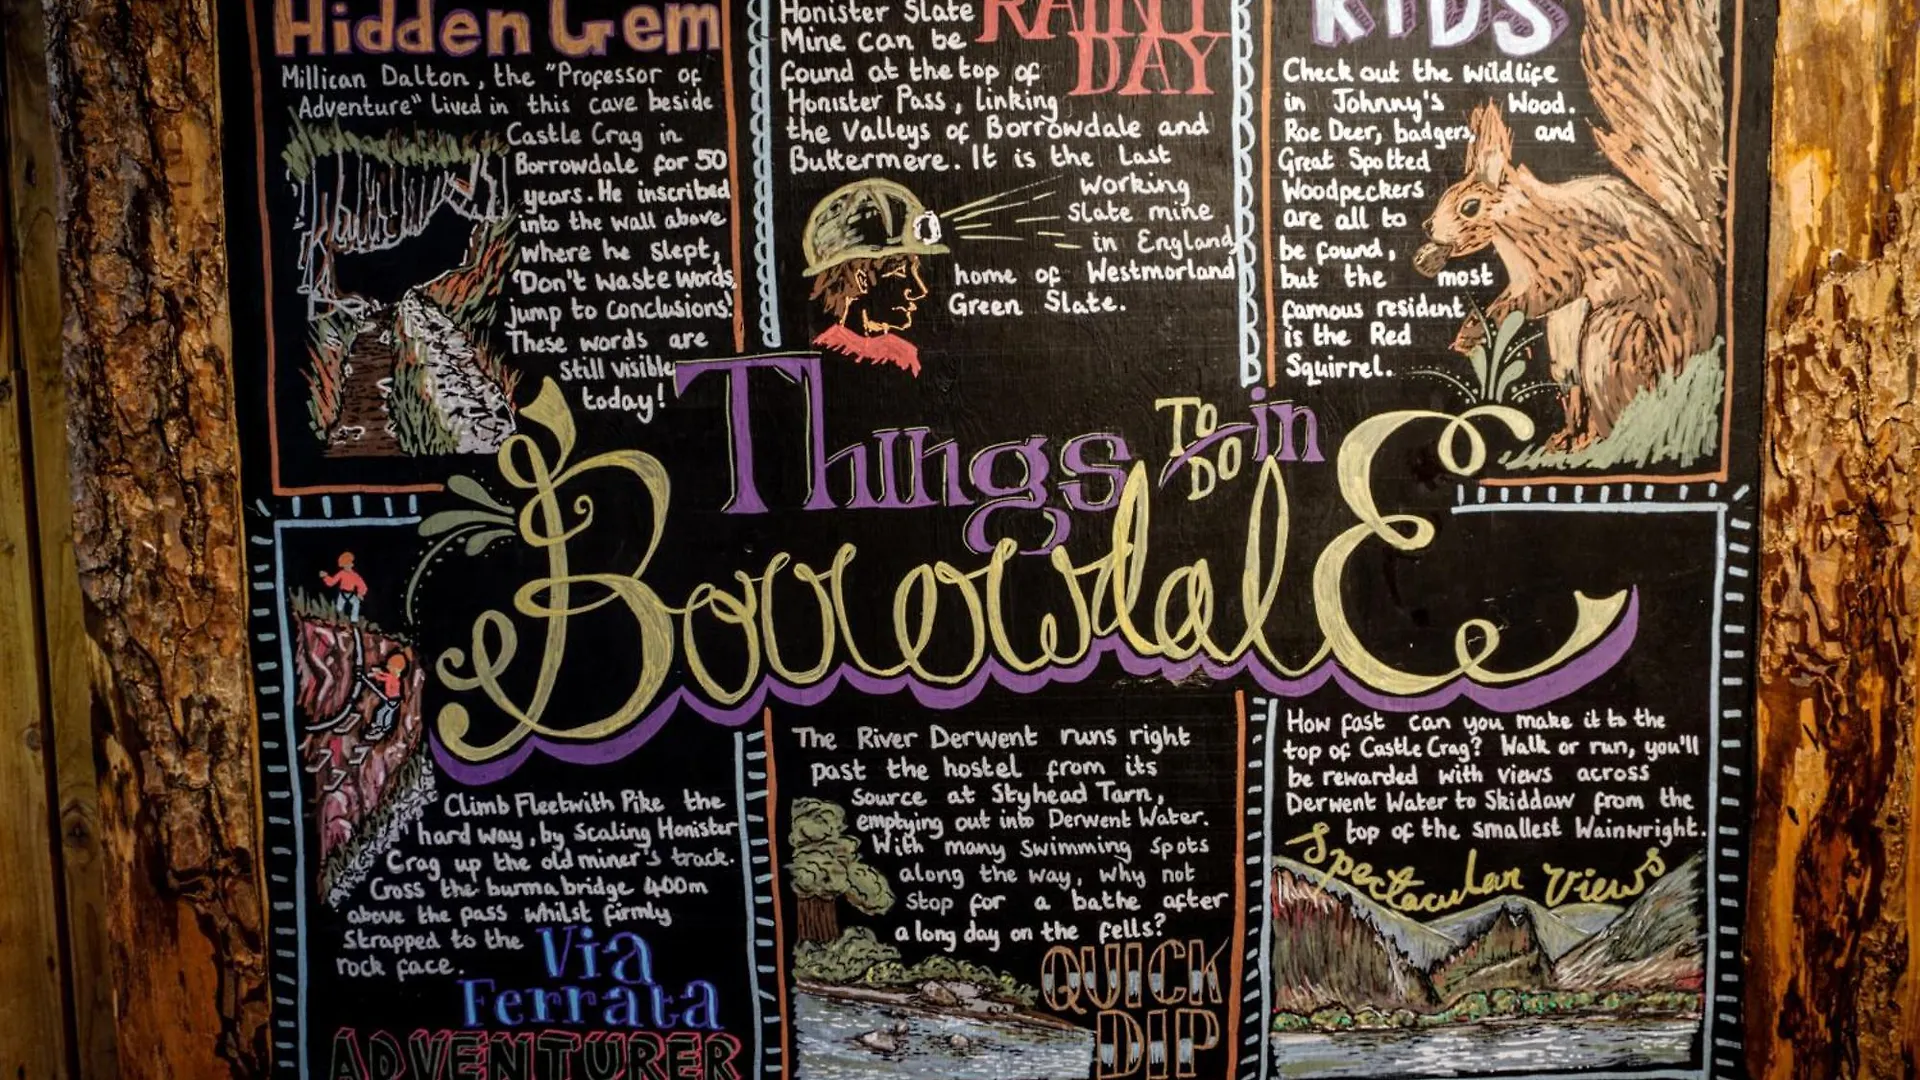 Hidden Gem
Millican Dalton, the "Professor of
Adventure" lived in this cave beside
Castle Crag in
Borrowdale for 50
years. He inscribed
into the wall above
where he slept,
'Don't waste words,
jump to conclusions'.
These words are
still visible
today!
RAINY
DAY
Honister Slate
Mine can be
found at the top of
Honister Pass, linking
the valleys of Borrowdale and
Buttermere. It is the last
working
slate mine
in England,
home of Westmorland
Green Slate.
KIDS
Check out the wildlife
in Johnny's Wood.
Roe Deer, badgers, and
Great Spotted
Woodpeckers
are all to
be found,
but the most
famous resident
is the Red
Squirrel.
Things TO DO in
BorrowdalE
Climb Fleetwith Pike the
hard way, by scaling Honister
Crag up the old miner's track.
Cross the burma bridge 400m
above the pass whilst firmly
strapped to the
rock face.
Via
Ferrata
ADVENTURER
The River Derwent runs right
past the hostel from its
source at Styhead Tarn,
emptying out into Derwent Water.
With many swimming spots
along the way, why not
stop for a bathe after
a long day on the fells?
QUICK
DIP
How fast can you make it to the
top of Castle Crag? Walk or run, you'll
be rewarded with views across
Derwent Water to Skiddaw from the
top of the smallest Wainwright.
Spectacular Views